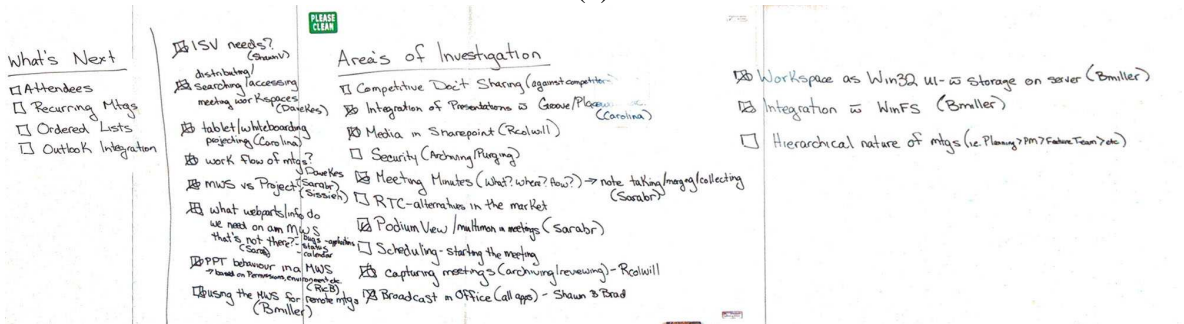 PLEASE
CLEAN
What's Next
Attendees
Recurring Mtgs
Ordered Lists
Outlook Integration
ISV needs?
(ShawnV)
distributing/
searching/accessing
meeting workspaces
(DaveKes)
tablet/whiteboarding
projecting (Carolina)
work flow of mtgs?
DaveKes
(Sarabr)
MWS vs Project (Sissieh)
what webparts/info do
we need on am MWS
that's not there? - bugs - agendas
- status
- calendar
(Sarab)
PPT behaviour in a MWS
→ based on Permissions, environment etc.
(RicB)
using the MWS for remote mtgs
(Bmiller)
Area's of Investigation
Competitive Doc't Sharing (against competitor
Integration of Presentations w Groove/
(Carolina)
Media in Sharepoint (Rcolwill)
Security (Archiving/Purging)
Meeting Minutes (What? Where? How?) → note taking/merging/collecting
(Sarabr)
RTC-alternatives in the market
Podium View /multimon in meetings (Sarabr)
Scheduling - starting the meeting
capturing meetings (archiving/reviewing) - Rcolwill
Broadcast in Office (all apps) - Shawn & Brad
Workspace as Win32 UI - w storage on server (Bmiller)
Integration w WinFS (Bmiller)
Hierarchical nature of mtgs (i.e. Planning > PM > Feature Team > etc)